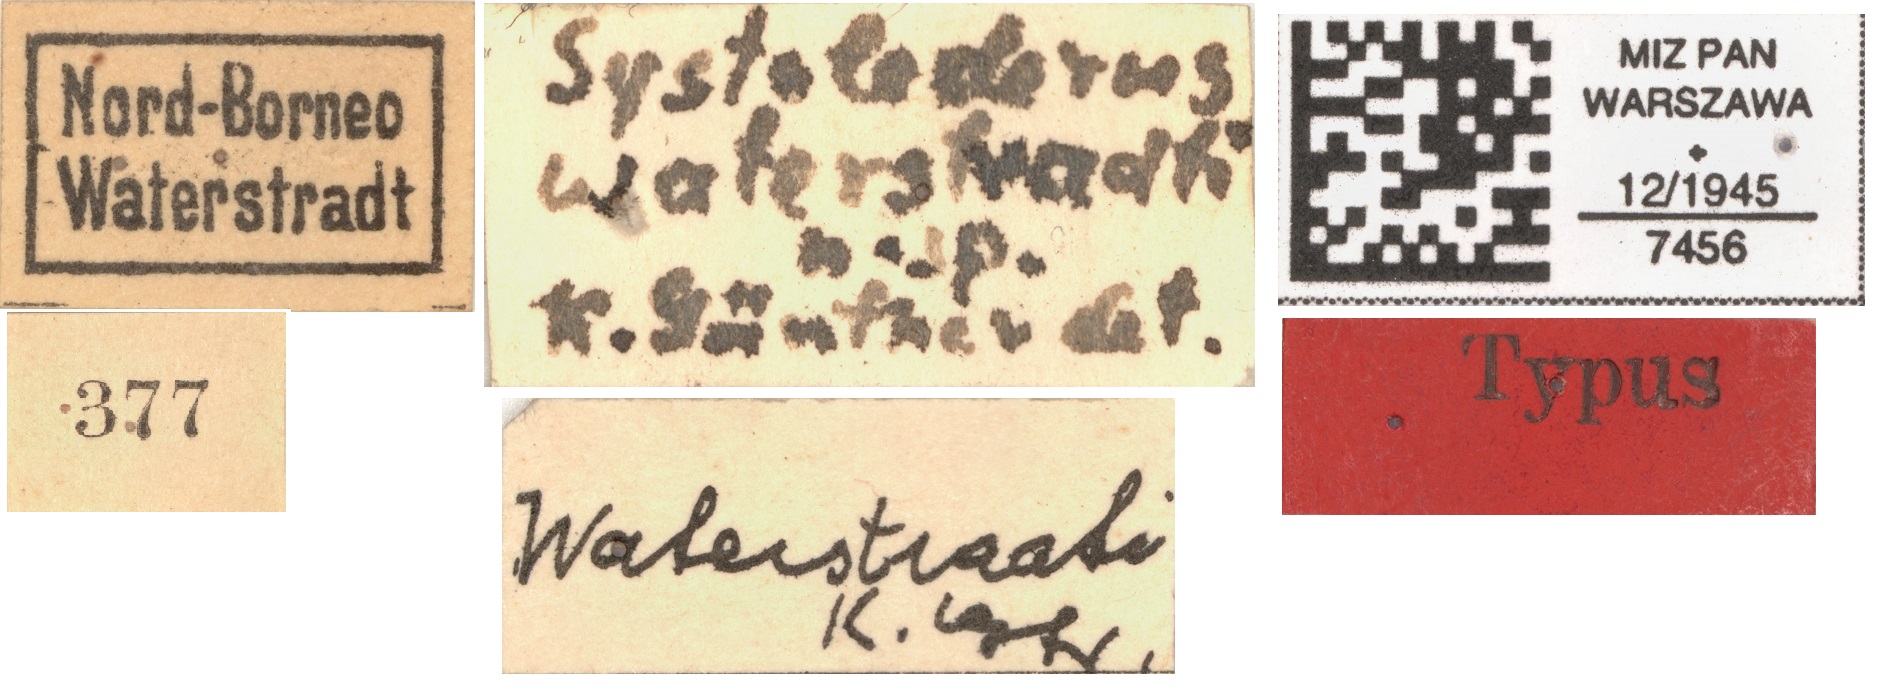 Nord-Borneo
Waterstradt
377
Systolederus
waterstradti
n. sp.
K. Günther det.
Waterstraati
K.
MIZ PAN
WARSZAWA
12/1945
7456
Typus